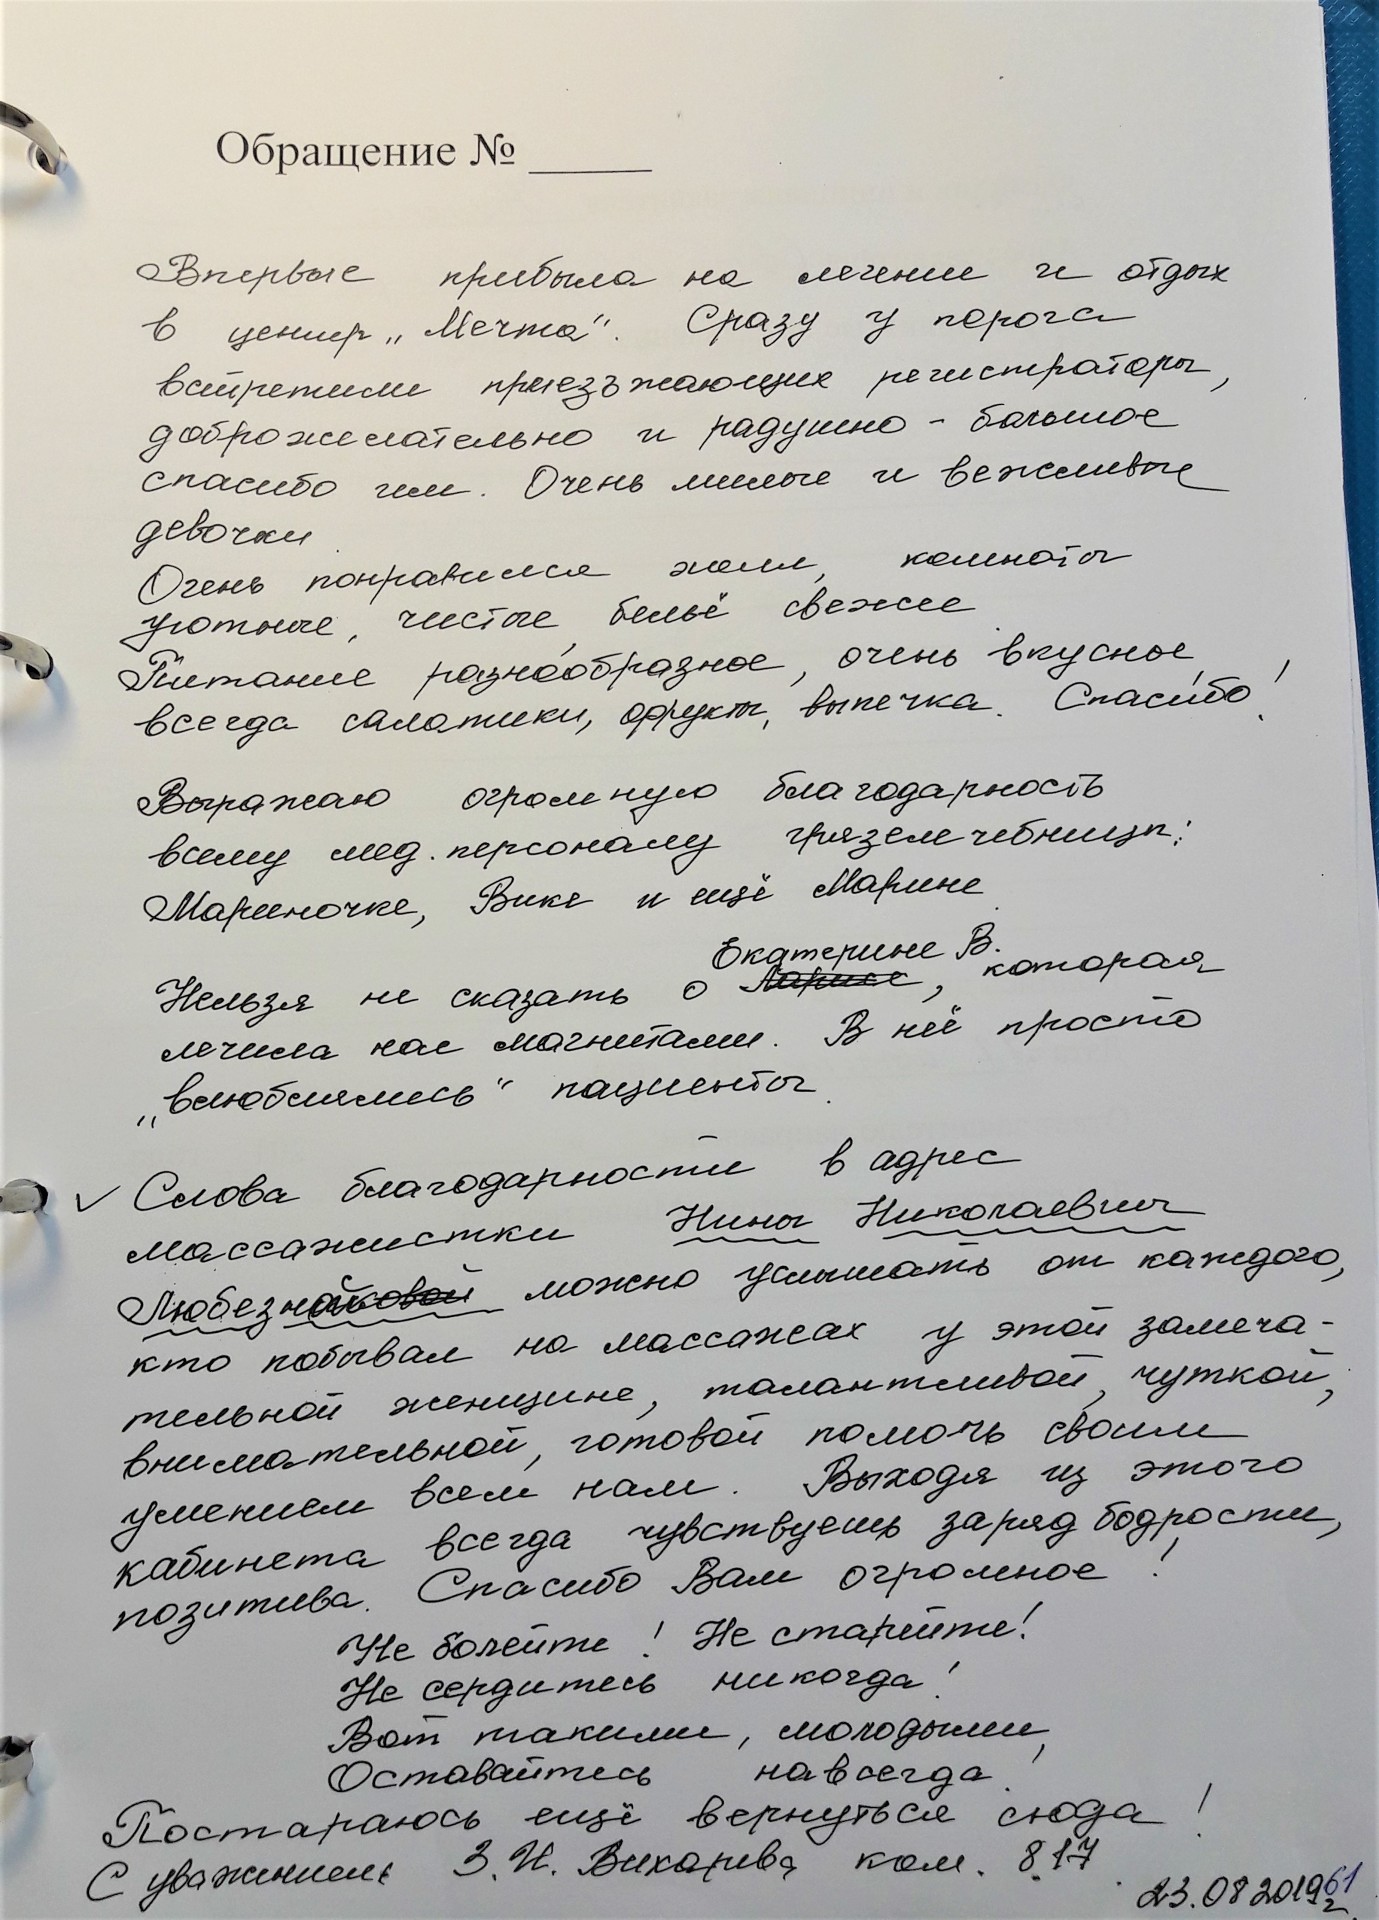 Обращение № _____
Впервые прибыла на лечение и отдых
в центр „Мечта“. Сразу у порога
встретили приезжающих регистраторы,
доброжелательно и радушно - большое
спасибо им. Очень милые и вежливые
девочки.
Очень понравился холл, комнаты
уютные, чистые, бельё свежее.
Питание разнообразное, очень вкусное,
всегда салатики, фрукты, выпечка. Спасибо!
Выражаю огромную благодарность
всему мед. персоналу грязелечебницы:
Мариночке, Вике и ещё Марине
Екатерине В.
Нельзя не сказать о Ларисе, которая
лечила нас магнитами. В неё просто
„влюблялись“ пациенты.
✓ Слова благодарности в адрес
массажистки Нины Николаевны
Любезн можно услышать от каждого,
кто побывал на массажах у этой замеча-
тельной женщине, талантливой, чуткой,
внимательной, готовой помочь своим
умением всем нам. Выходя из этого
кабинета всегда чувствуешь заряд бодрости,
позитива. Спасибо Вам огромное!
Не болейте! Не старейте!
Не сердитесь никогда!
Вот такими, молодыми,
Оставайтесь навсегда!
Постараюсь ещё вернуться сюда!
С уважением З.И. ком. 817.
23.08 2019 г.
61